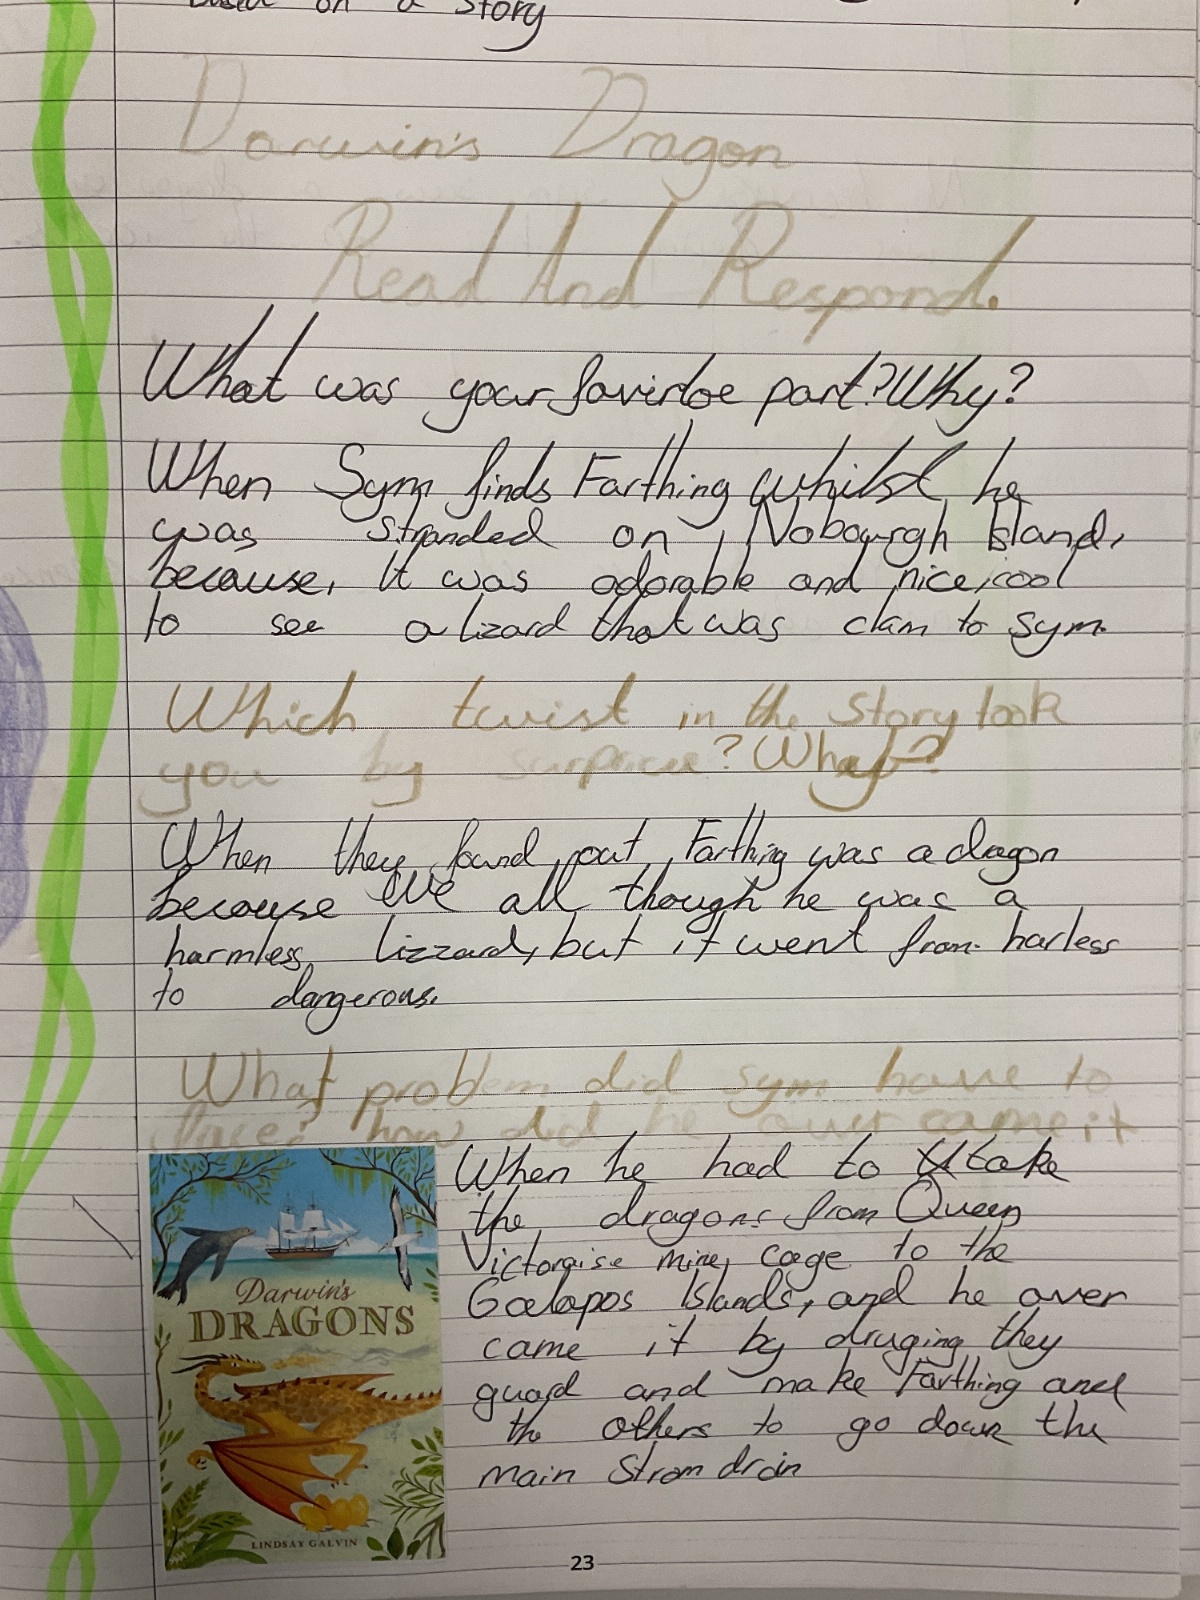 based on a story
Darwin's Dragon
Read And Respond.
What was your favirtoe part? Why?
When Sym finds Farthing whilst he
was stranded on Nobourgh Island,
because, It was adorable and nice, cool
to see a lizard that was clam to Sym.
Which twist in the story took
you by surprise? Why?
When they found out Farthing was a dragon
because we all though he was a
harmless lizzard, but it went from harless
to dangerous.
What problem did sym have to
face? how did he over came it
When he had to take
the dragons from Queen
Victoraise mine, cage to the
Galapos Islands, and he over
came it by druging they
guard and make Farthing and
the others to go down the
main Strom drain
Darwin's
DRAGONS
LINDSAY GALVIN
23